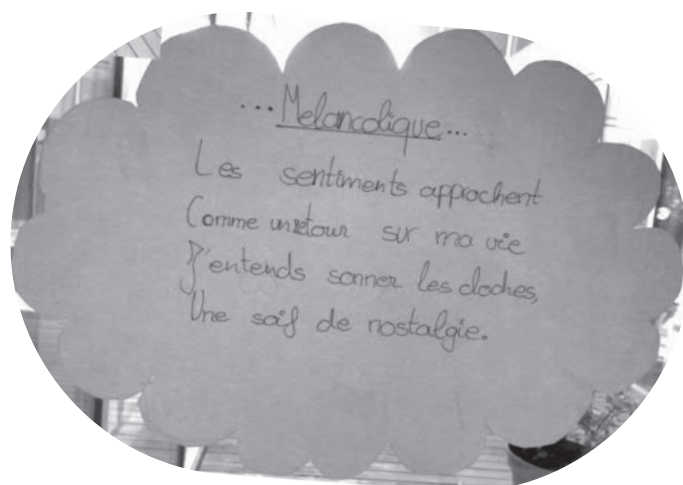 ...Melancolique...
Les sentiments approchent
Comme un retour sur ma vie
J'entends sonner les cloches,
Une soif de nostalgie.